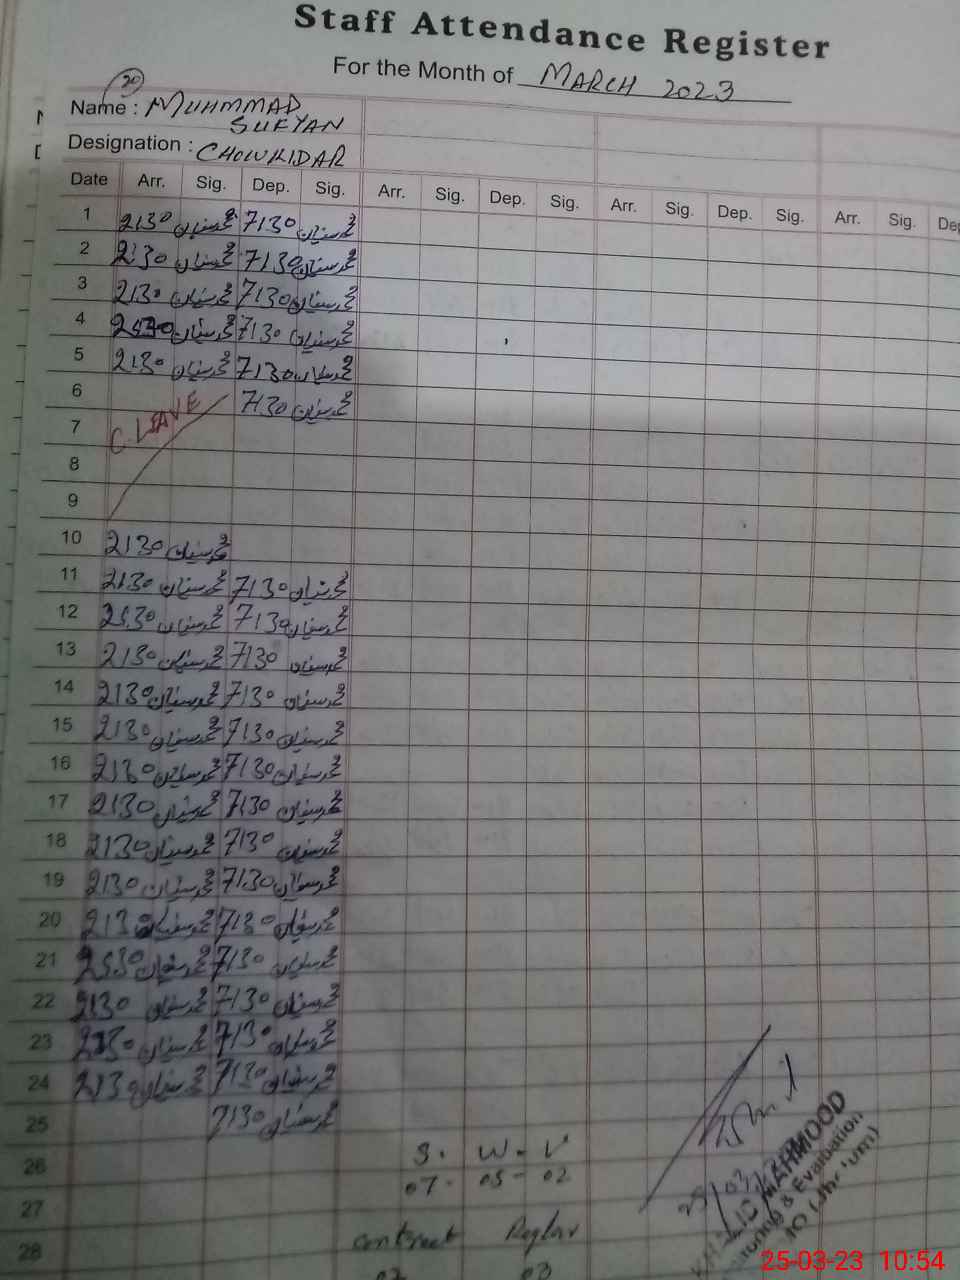 Staff Attendance Register
For the Month of MARCH 2023
20
Name : MUHMMAD
SUFYAN
Designation : CHOWKIDAR
Date Arr. Sig. Dep. Sig. Arr. Sig. Dep. Sig. Arr. Sig. Dep. Sig. Arr. Sig. Dep
1 2130 محمد سفیان 7130 محمد سفیان
2 2130 محمد سفیان 7130 محمد سفیان
3 2130 محمد سفیان 7130 محمد سفیان
4 2130 محمد سفیان 7130 محمد سفیان
5 2130 محمد سفیان 7130 محمد سفیان
6 7130 محمد سفیان
7 C. LEAVE
8
9
10 2130 محمد سفیان
11 2130 محمد سفیان 7130 محمد سفیان
12 2130 محمد سفیان 7130 محمد سفیان
13 2130 محمد سفیان 7130 محمد سفیان
14 2130 محمد سفیان 7130 محمد سفیان
15 2130 محمد سفیان 7130 محمد سفیان
16 2130 محمد سفیان 7130 محمد سفیان
17 2130 محمد سفیان 7130 محمد سفیان
18 2130 محمد سفیان 7130 محمد سفیان
19 2130 محمد سفیان 7130 محمد سفیان
20 2130 محمد سفیان 7130 محمد سفیان
21 2130 محمد سفیان 7130 محمد سفیان
22 2130 محمد سفیان 7130 محمد سفیان
23 2130 محمد سفیان 7130 محمد سفیان
24 2130 محمد سفیان 7130 محمد سفیان
25 7130 محمد سفیان
26 S. W. V
27 07 - 05 - 02
28 contract Reglar
03
MAHMOOD
& Evaluation
25-03-23 10:54